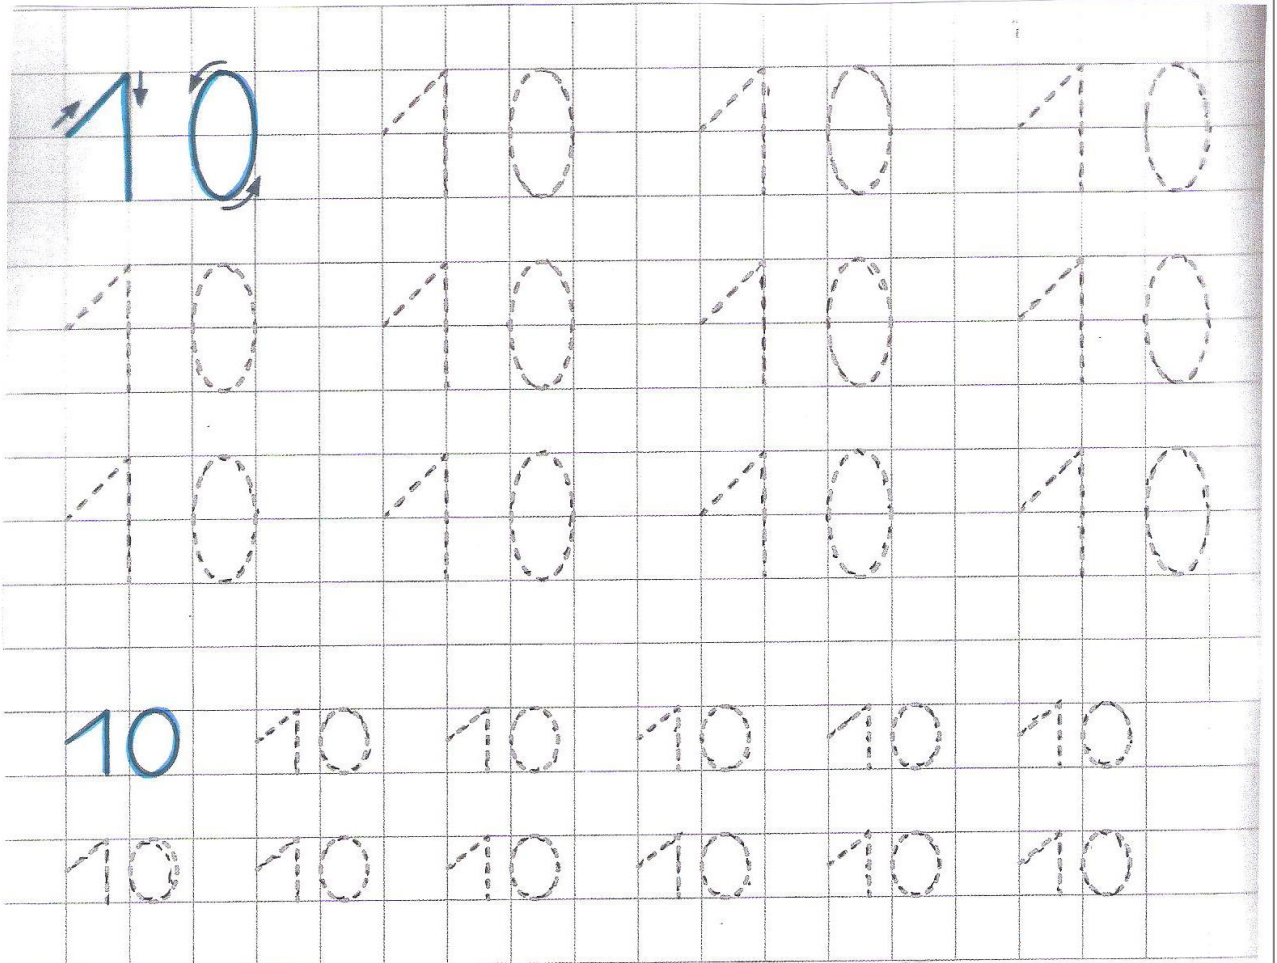 10 10 10 10
10 10 10 10
10 10 10 10
10 10 10 10 10 10
10 10 10 10 10 10